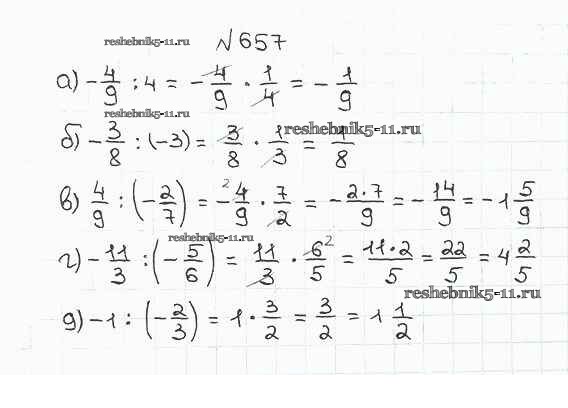 reshebnik5-11.ru
№657
а) -4/9 : 4 = -4/9 · 1/4 = -1/9
reshebnik5-11.ru
б) -3/8 : (-3) = 3/8 · 1/3 = 1/8 reshebnik5-11.ru
в) 4/9 : (-2/7) = -4/9 2 · 7/2 = -2·7/9 = -14/9 = -1 5/9
reshebnik5-11.ru
г) -11/3 : (-5/6) = 11/3 · 6/5 2 = 11·2/5 = 22/5 = 4 2/5
reshebnik5-11.ru
д) -1 : (-2/3) = 1 · 3/2 = 3/2 = 1 1/2